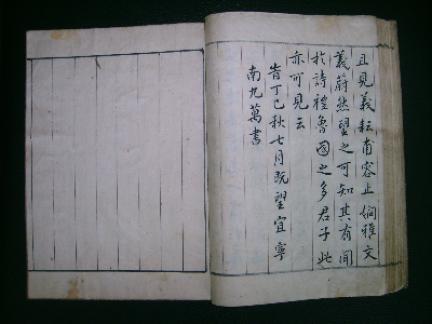 且見義耘甫容止嫺雅文
義蔚然望之可知其有聞
於詩禮魯國之多君子此
亦可見云
旹丁巳秋七月既望宜寧
南九萬書